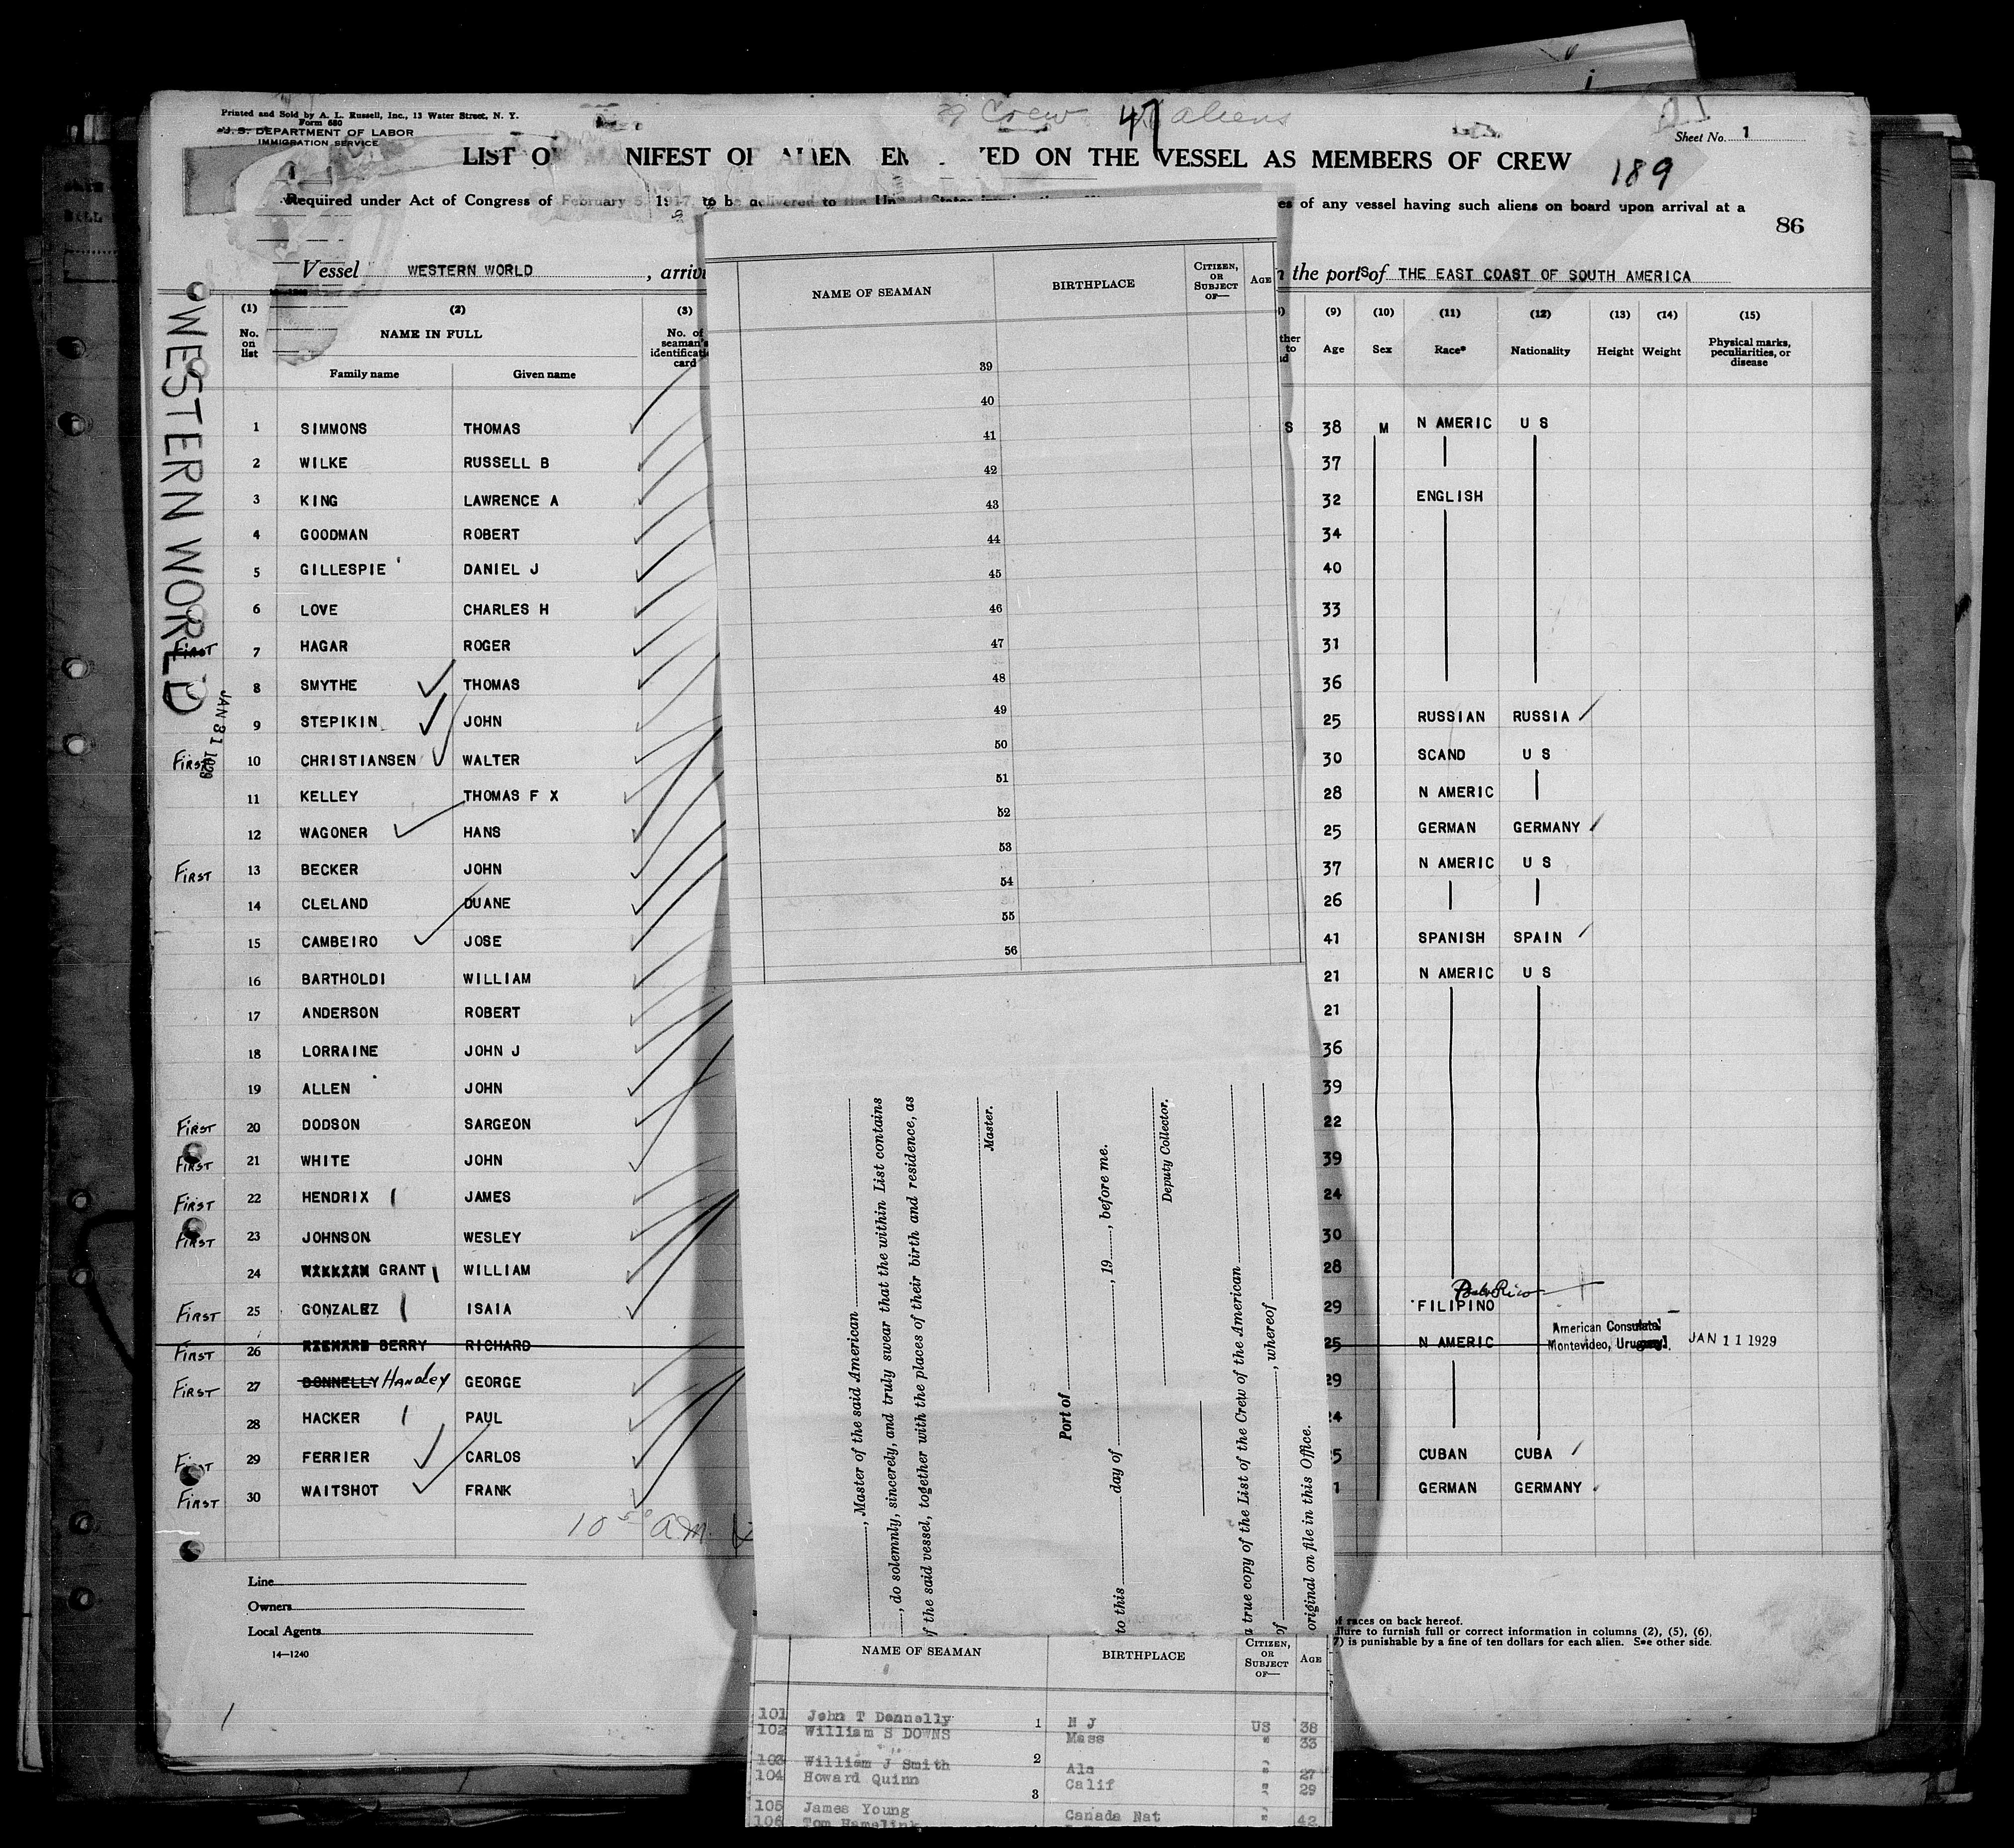 Crew 47 aliens
Printed and Sold by A. L. Russell, Inc., 13 Water Street, N. Y.
Form 680
U. S. DEPARTMENT OF LABOR
IMMIGRATION SERVICE
Sheet No. 1
LIST O MANIFEST OF ALIEN EM ED ON THE VESSEL AS MEMBERS OF CREW
189
Required under Act of Congress of February 5, 1917, to be delivered to the United States
es of any vessel having such aliens on board upon arrival at a
86
Vessel WESTERN WORLD , arrivi
the ports of THE EAST COAST OF SOUTH AMERICA
WESTERN WORLD
JAN 31 1929
(1) (2) (3) (9) (10) (11) (12) (13) (14) (15)
No. on list NAME IN FULL No. of seaman's identificati card Age Sex Race* Nationality Height Weight Physical marks, peculiarities, or disease
Family name Given name
1 SIMMONS THOMAS S 38 M N AMERIC U S
2 WILKE RUSSELL B 37
3 KING LAWRENCE A 32 ENGLISH
4 GOODMAN ROBERT 34
5 GILLESPIE DANIEL J 40
6 LOVE CHARLES H 33
First 7 HAGAR ROGER 31
8 SMYTHE THOMAS 36
9 STEPIKIN JOHN 25 RUSSIAN RUSSIA
First 10 CHRISTIANSEN WALTER 30 SCAND U S
11 KELLEY THOMAS F X 28 N AMERIC
12 WAGONER HANS 25 GERMAN GERMANY
First 13 BECKER JOHN 37 N AMERIC U S
14 CLELAND DUANE 26
15 CAMBEIRO JOSE 41 SPANISH SPAIN
16 BARTHOLDI WILLIAM 21 N AMERIC U S
17 ANDERSON ROBERT 21
18 LORRAINE JOHN J 36
19 ALLEN JOHN 39
First 20 DODSON SARGEON 22
First 21 WHITE JOHN 39
First 22 HENDRIX JAMES 24
First 23 JOHNSON WESLEY 30
24 GRANT WILLIAM 28
Porto Rico
First 25 GONZALEZ ISAIA 29 FILIPINO
First 26 BERRY RICHARD 25 N AMERIC
American Consulate
Montevideo, Uruguay. JAN 11 1929
First 27 DONNELLY Handley GEORGE 29
28 HACKER PAUL 24
First 29 FERRIER CARLOS 5 CUBAN CUBA
First 30 WAITSHOT FRANK 1 GERMAN GERMANY
10 50 am
Line
Owners
Local Agents
14—1240
of races on back hereof.
ilure to furnish full or correct information in columns (2), (5), (6),
7) is punishable by a fine of ten dollars for each alien. See other side.
NAME OF SEAMAN BIRTHPLACE CITIZEN, OR SUBJECT OF— AGE
39
40
41
42
43
44
45
46
47
48
49
50
51
52
53
54
55
56
, Master of the said American
, do solemnly, sincerely, and truly swear that the within List contains
f the said vessel, together with the places of their birth and residence, as
Master.
Port of
to this day of , 19 , before me.
Deputy Collector.
a true copy of the List of the Crew of the American
of , whereof
original on file in this Office.
NAME OF SEAMAN BIRTHPLACE CITIZEN, OR SUBJECT OF— AGE
101 John T Donnelly 1 N J US 38
102 William S DOWNS Mass " 33
103 William J Smith 2 Ala " 27
104 Howard Quinn Calif " 29
3
105 James Young Canada Nat " 42
106 Tom Hamelink